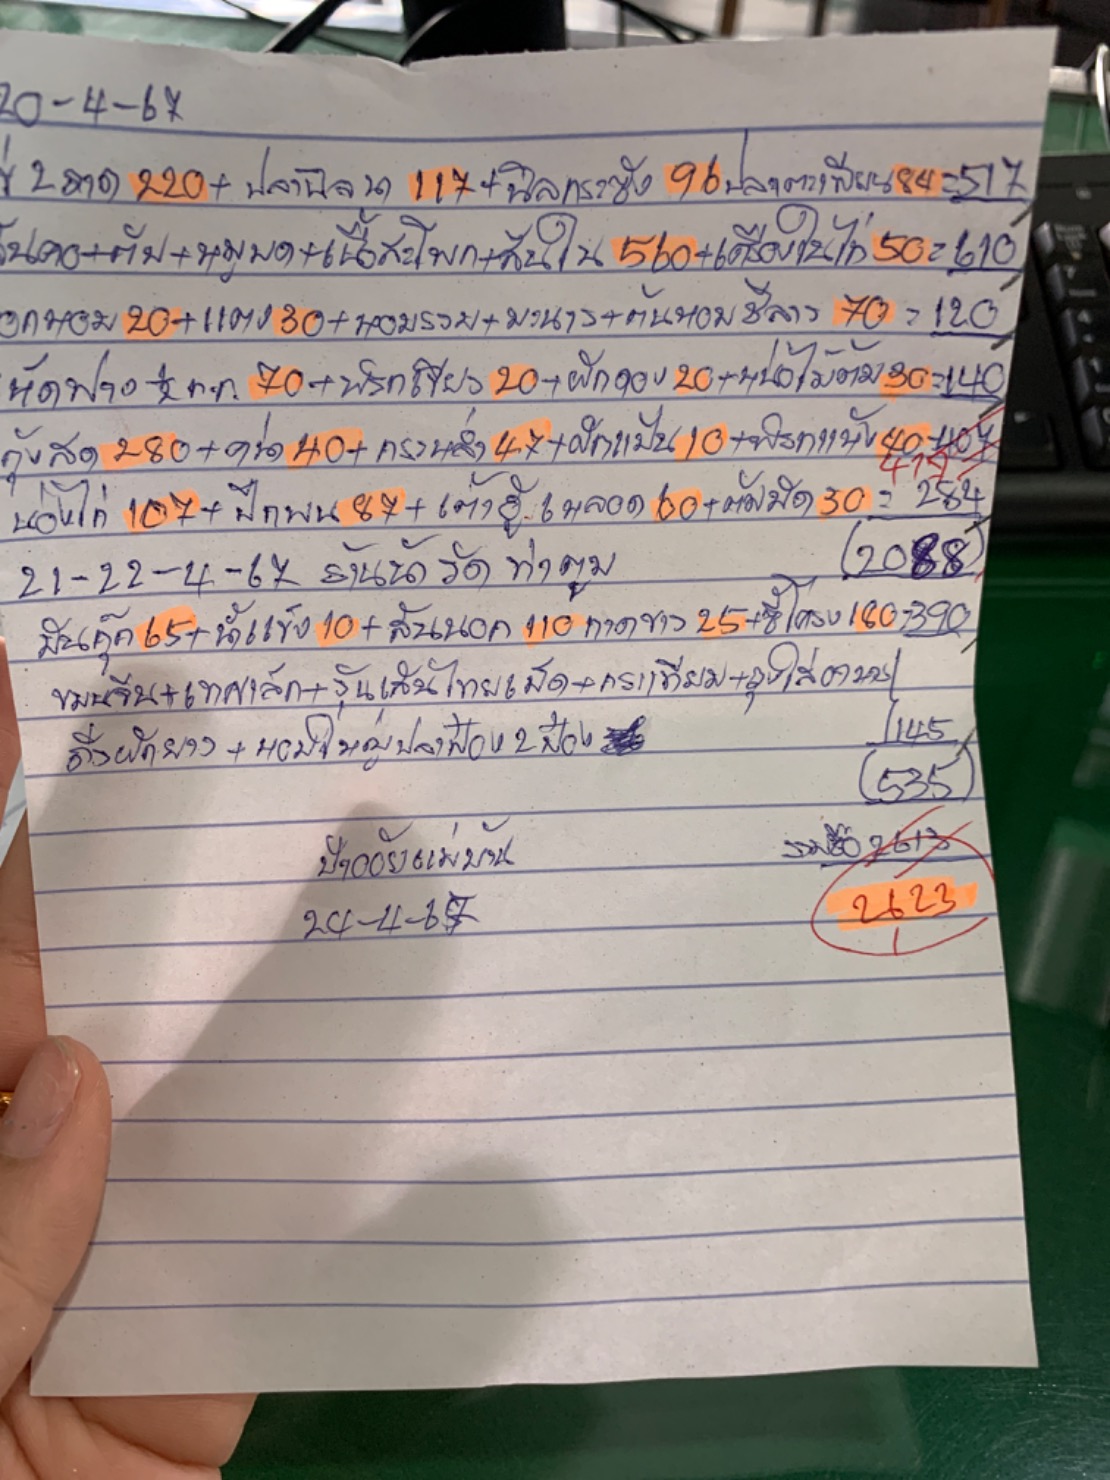 20-4-67
2 ถาด 220+ ปลานิลนา 117+นิลกระชัง 96 ปลาตะเพียน 84=517
สันคอ+ตับ+หมูบด+เนื้อสะโพก+สันใน 560+เครื่องในไก่ 50=610
ดอกหอม 20+แตง 30+หอมรวม+มะนาว+ต้นหอมชีลาว 70=120
เห็ดฟาง ½ ก.ก. 70+พริกเขียว 20+ผักดอง 20+หน่อไม้ต้ม 30=140
กุ้งสด 280+ 40+กะหล่ำ 47+ฝักแม้น 10+พริกแห้ง 40=407
417
น่องไก่ 107+ปีกบน 87+เต้าหู้หลอด 60+ 30=284
(2088)
21-22-4-67 ร้านน้ำ วัด ท่าตูม
มันกุ๊ก 65+น้ำแข็ง 10+สันนอก 110 กาดขาว 25+ซี่โครง 180=390
ขนมจีน+ +วุ้นเส้นไทยเม็ด+กระเทียม+ถุงใส่อาหาร
ถั่วฝักยาว+หอมใหญ่ปลาป๋อง 2 ป๋อง 145
(535)
ป้าออยแม่บ้าน รวม 2613
24-4-67 2623